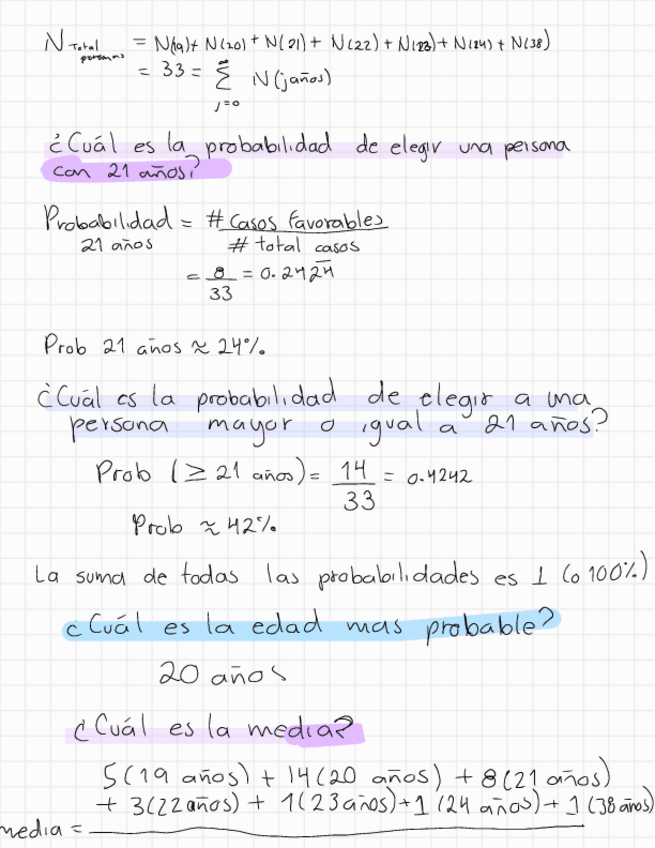 N Total personas = N(19)+ N(20)+ N(21)+ N(22)+ N(23)+ N(24)+ N(38)
= 33 = ∞ Σ j=0 N(jaños)
¿Cuál es la probabilidad de elegir una persona
con 21 años?
Probabilidad 21 años = # Casos favorables
# total casos
= 8/33 = 0.242̅4̅
Prob 21 años ≈ 24%.
¿Cuál es la probabilidad de elegir a una
persona mayor o igual a 21 años?
Prob (≥ 21 años) = 14/33 = 0.4242
Prob ≈ 42%.
La suma de todas las probabilidades es 1 (o 100%)
¿Cuál es la edad mas probable?
20 años
¿Cuál es la media?
5(19 años) + 14(20 años) + 8(21 años)
+ 3(22años) + 1(23años)+1 (24 años)+ 1 (38 años)
media =